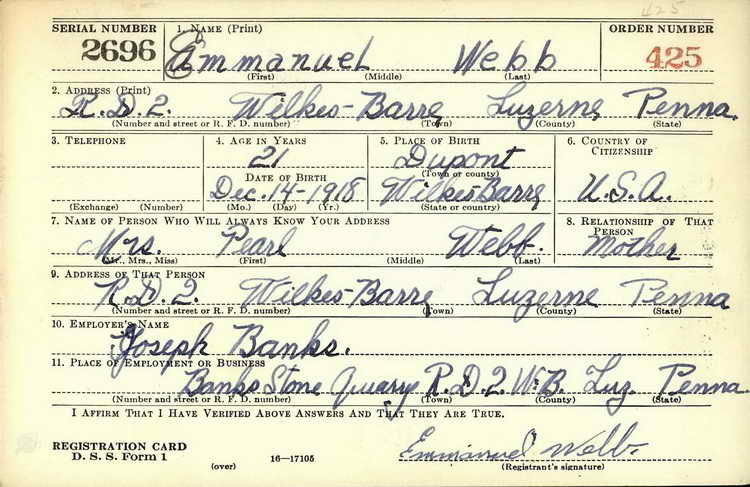 425
SERIAL NUMBER 1. NAME (Print) ORDER NUMBER
2696 Emmanuel Webb 425
(First) (Middle) (Last)
2. ADDRESS (Print)
R.D.2. Wilkes-Barre Luzerne Penna.
(Number and street or R. F. D. number) (Town) (County) (State)
3. TELEPHONE 4. AGE IN YEARS 5. PLACE OF BIRTH 6. COUNTRY OF CITIZENSHIP
21 Dupont
(Town or county)
DATE OF BIRTH
Dec. 14-1918 Wilkes Barre U.S.A.
(Exchange) (Number) (Mo.) (Day) (Yr.) (State or country)
7. NAME OF PERSON WHO WILL ALWAYS KNOW YOUR ADDRESS 8. RELATIONSHIP OF THAT PERSON
Mrs. Pearl Webb. Mother
(Mr., Mrs., Miss) (First) (Middle) (Last)
9. ADDRESS OF THAT PERSON
R.D.2. Wilkes-Barre Luzerne Penna
(Number and street or R. F. D. number) (Town) (County) (State)
10. EMPLOYER'S NAME
Joseph Banks.
11. PLACE OF EMPLOYMENT OR BUSINESS
Banks Stone Quarry R.D.2. W.B. Luz. Penna.
(Number and street or R. F. D. number) (Town) (County) (State)
I AFFIRM THAT I HAVE VERIFIED ABOVE ANSWERS AND THAT THEY ARE TRUE.
REGISTRATION CARD
D. S. S. Form 1 (over) 16-17105 Emmanuel Webb.
(Registrant's signature)